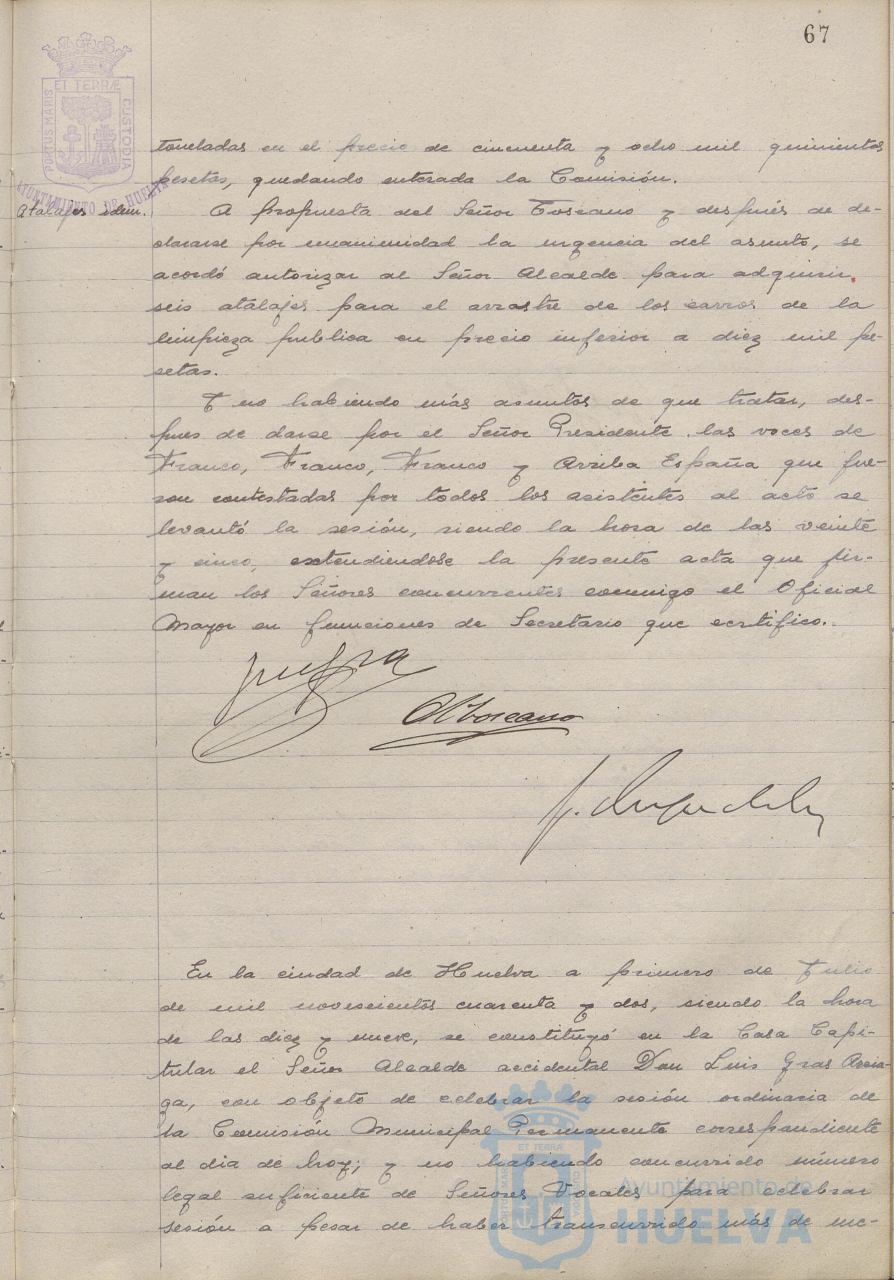 67
PORTUS MARIS
ET TERRÆ
CUSTODIA
AYUNTAMIENTO DE HUELVA
toneladas en el precio de cincuenta y ocho mil quinientas
pesetas, quedando enterada la Comisión.
Atalajes idem.
A propuesta del Señor Toscano y después de de-
clararse por unanimidad la urgencia del asunto, se
acordó autorizar al Señor Alcalde para adquirir
seis atalajes para el arrastre de los carros de la
limpieza publica en precio inferior a diez mil pe-
setas.
Y no habiendo más asuntos de que tratar, des-
pues de darse por el Señor Presidente las voces de
Franco, Franco, Franco y Arriba España que fue-
ron contestadas por todos los asistentes al acto se
levantó la sesión, siendo la hora de las veinte
y cinco, extendiendose la presente acta que fir-
man los Señores concurrentes conmigo el Oficial
Mayor en funciones de Secretario que certifico.
Toscano
En la ciudad de Huelva a primero de Julio
de mil novecientos cuarenta y dos, siendo la hora
de las diez y nueve, se constituyó en la Casa Capi-
tular el Señor Alcalde accidental Don Luis Gras
ga, con objeto de celebrar la sesión ordinaria de
la Comisión Municipal Permanente correspondiente
al dia de hoy; y no habiendo concurrido número
legal suficiente de Señores Vocales para celebrar
sesión a pesar de haber transcurrido más de me-
Ayuntamiento de
HUELVA